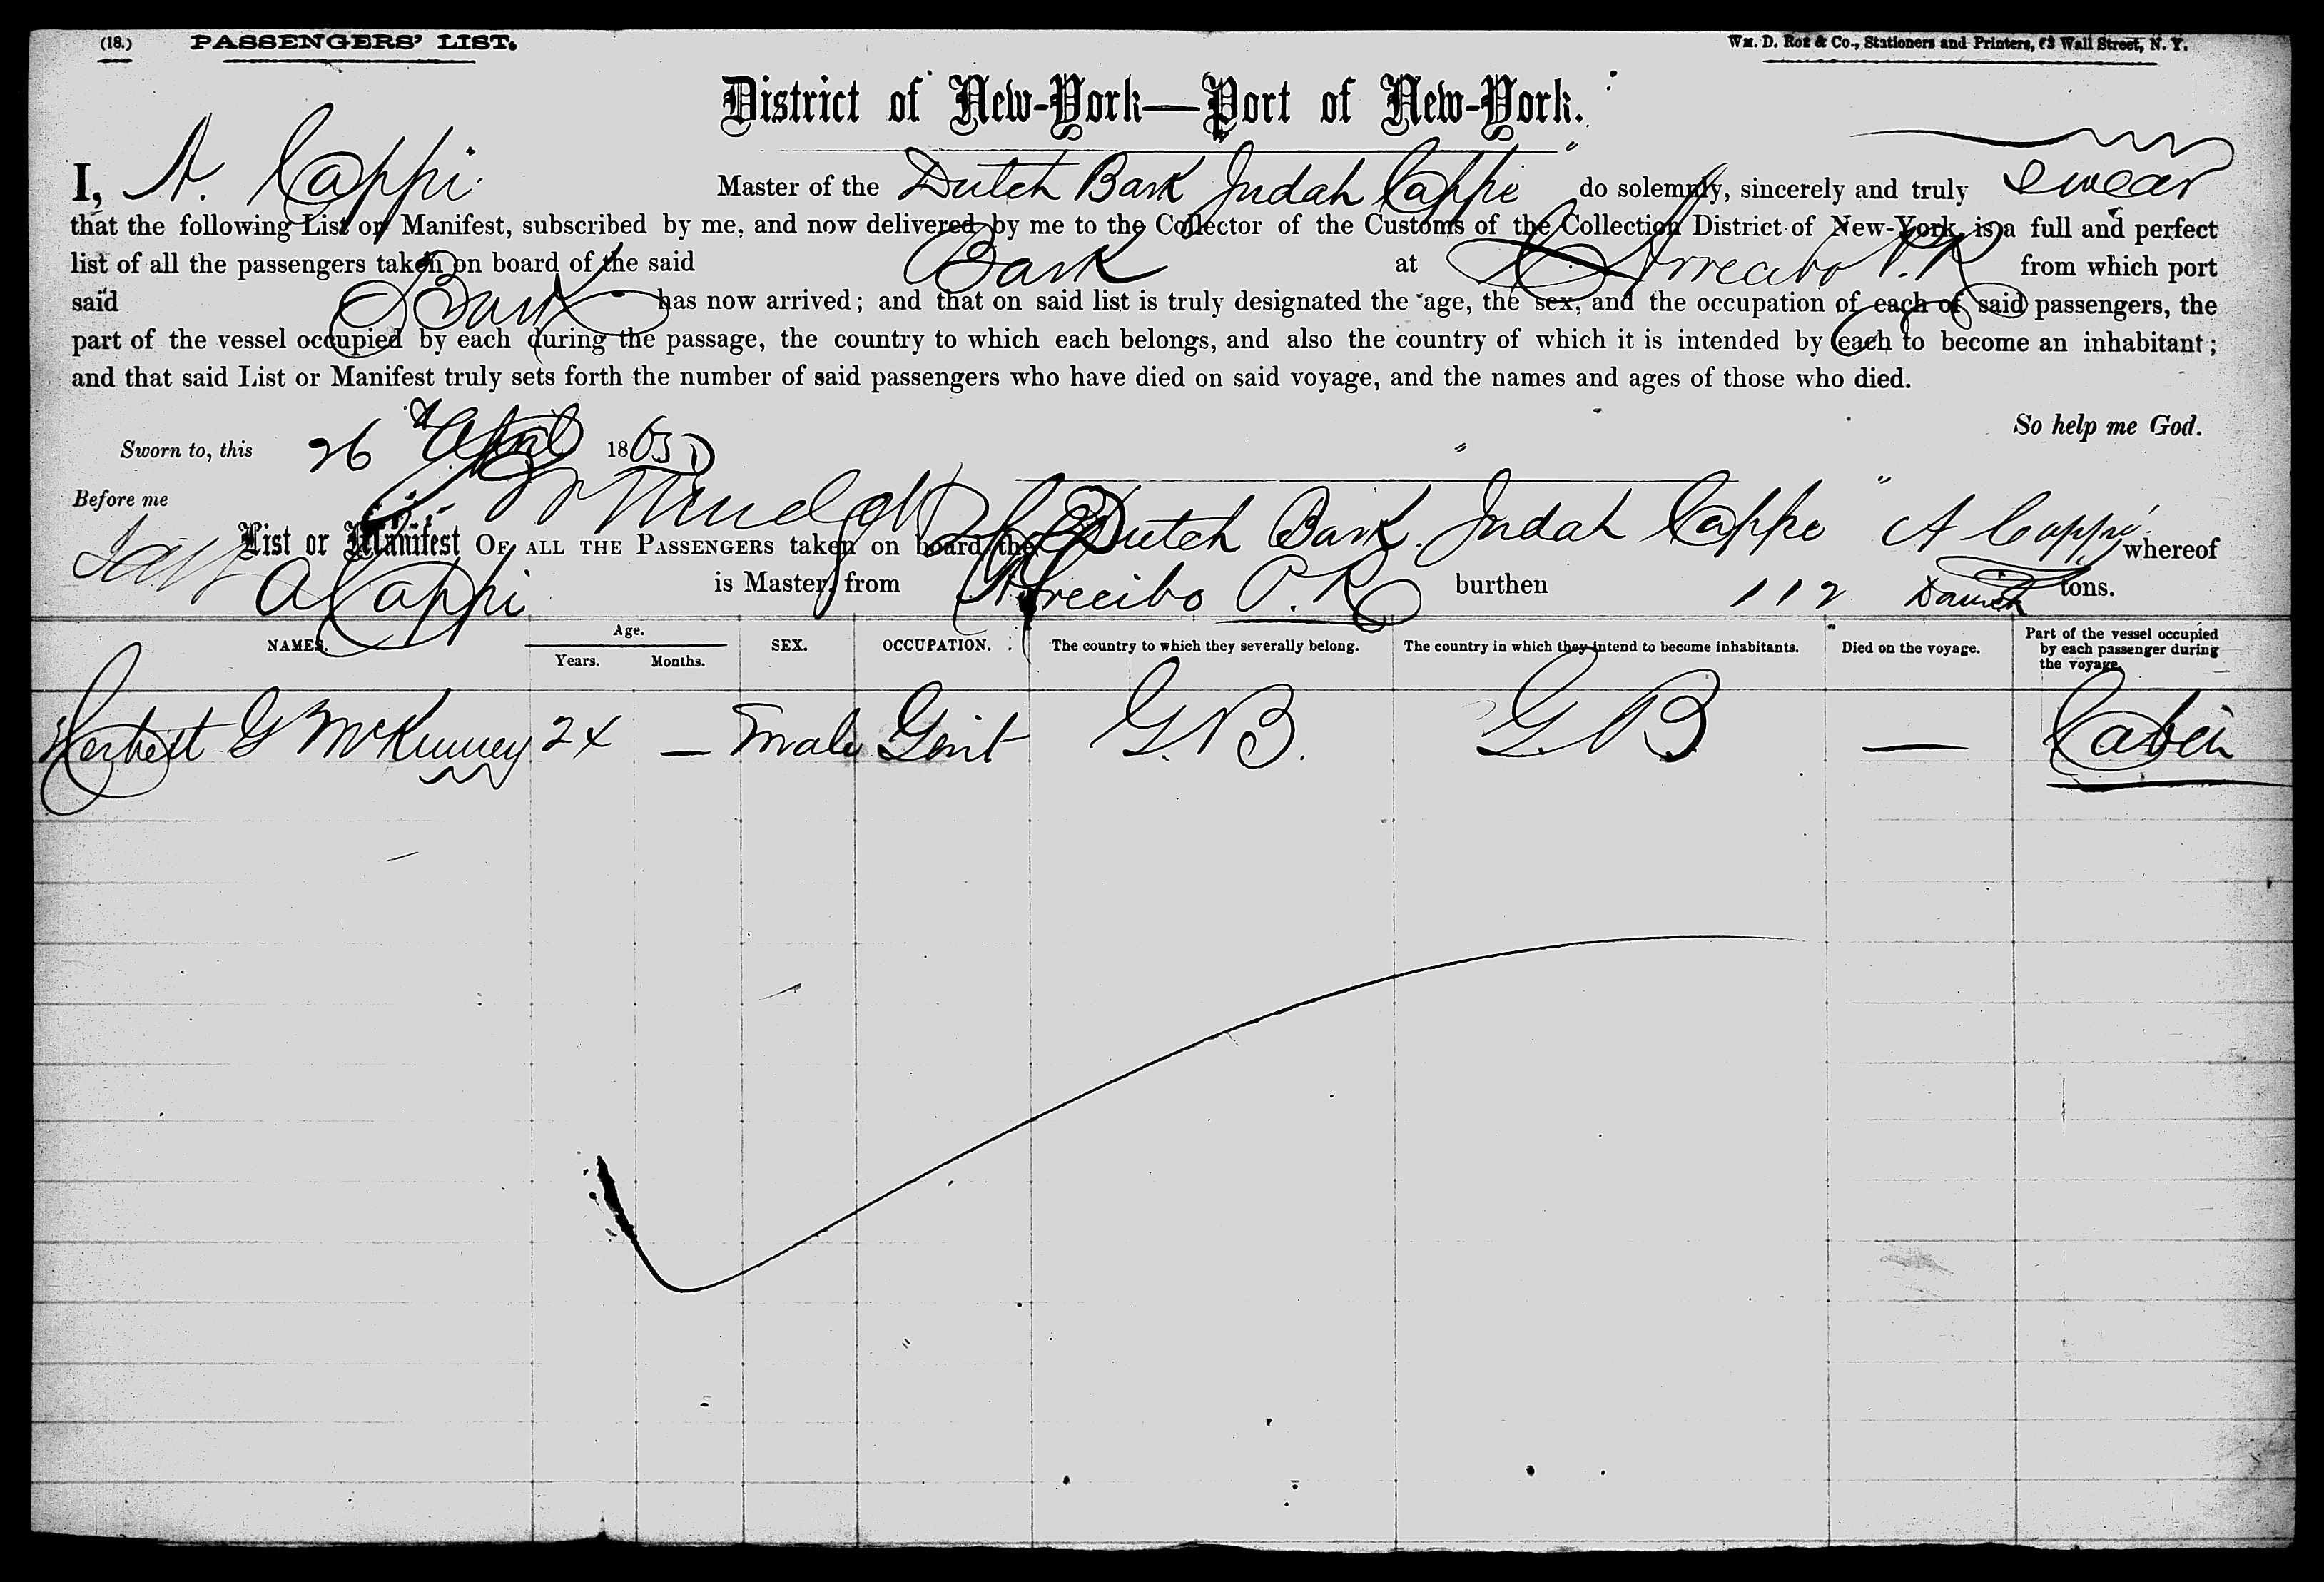 (18.) PASSENGERS' LIST. Wm. D. Roe & Co., Stationers and Printers, 63 Wall Street, N. Y.
District of New-York—Port of New-York.
I, A. Cappi Master of the Dutch Bark "Judah Cappe" do solemnly, sincerely and truly swear
that the following List or Manifest, subscribed by me, and now delivered by me to the Collector of the Customs of the Collection District of New-York, is a full and perfect
list of all the passengers taken on board of the said Bark at Arrecibo P.R from which port
said Bark has now arrived; and that on said list is truly designated the age, the sex, and the occupation of each of said passengers, the
part of the vessel occupied by each during the passage, the country to which each belongs, and also the country of which it is intended by each to become an inhabitant;
and that said List or Manifest truly sets forth the number of said passengers who have died on said voyage, and the names and ages of those who died.
So help me God.
Sworn to, this 26 April 1865
Before me
List or Manifest OF ALL THE PASSENGERS taken on board the Dutch Bark "Judah Cappe" A Cappi whereof
A Cappi is Master, from Arrecibo P.R burthen 112 tons.
NAMES. Age. Years. Months. SEX. OCCUPATION. The country to which they severally belong. The country in which they intend to become inhabitants. Died on the voyage. Part of the vessel occupied by each passenger during the voyage.
Herbert G McKinney 24 — Male Gent G.B. G.B — Cabin